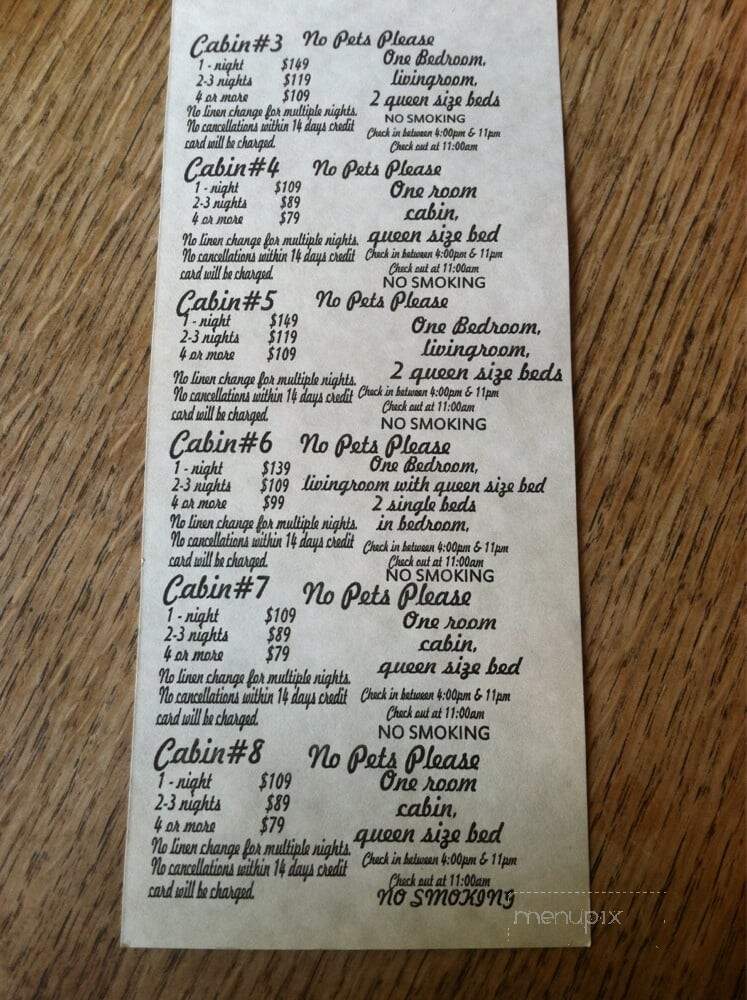 Cabin#3 No Pets Please
1 - night $149 One Bedroom,
2-3 nights $119 livingroom,
4 or more $109 2 queen size beds
No linen change for multiple nights. NO SMOKING
No cancellations within 14 days credit Check in between 4:00pm & 11pm
card will be charged. Check out at 11:00am
Cabin#4 No Pets Please
1 - night $109 One room
2-3 nights $89 cabin,
4 or more $79
No linen change for multiple nights. queen size bed
No cancellations within 14 days credit Check in between 4:00pm & 11pm
card will be charged. Check out at 11:00am
NO SMOKING
Cabin#5 No Pets Please
1 - night $149 One Bedroom,
2-3 nights $119 livingroom,
4 or more $109
2 queen size beds
No linen change for multiple nights.
No cancellations within 14 days credit Check in between 4:00pm & 11pm
card will be charged. Check out at 11:00am
NO SMOKING
Cabin#6 No Pets Please
1 - night $139 One Bedroom,
2-3 nights $109 livingroom with queen size bed
4 or more $99 2 single beds
No linen change for multiple nights. in bedroom,
No cancellations within 14 days credit Check in between 4:00pm & 11pm
card will be charged. Check out at 11:00am
NO SMOKING
Cabin#7 No Pets Please
1 - night $109 One room
2-3 nights $89 cabin,
4 or more $79 queen size bed
No linen change for multiple nights.
No cancellations within 14 days credit Check in between 4:00pm & 11pm
card will be charged. Check out at 11:00am
NO SMOKING
Cabin#8 No Pets Please
1 - night $109 One room
2-3 nights $89 cabin,
4 or more $79 queen size bed
No linen change for multiple nights.
No cancellations within 14 days credit Check in between 4:00pm & 11pm
card will be charged. Check out at 11:00am
NO SMOKING
menupix